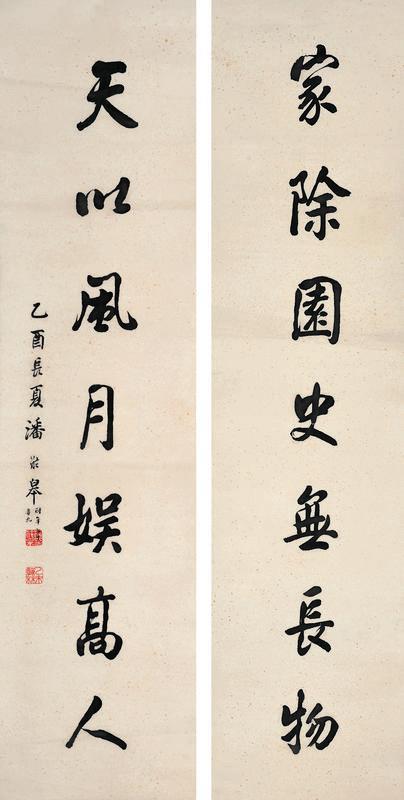 家除園史無長物
天以風月娛高人
乙酉長夏潘齡皋時年